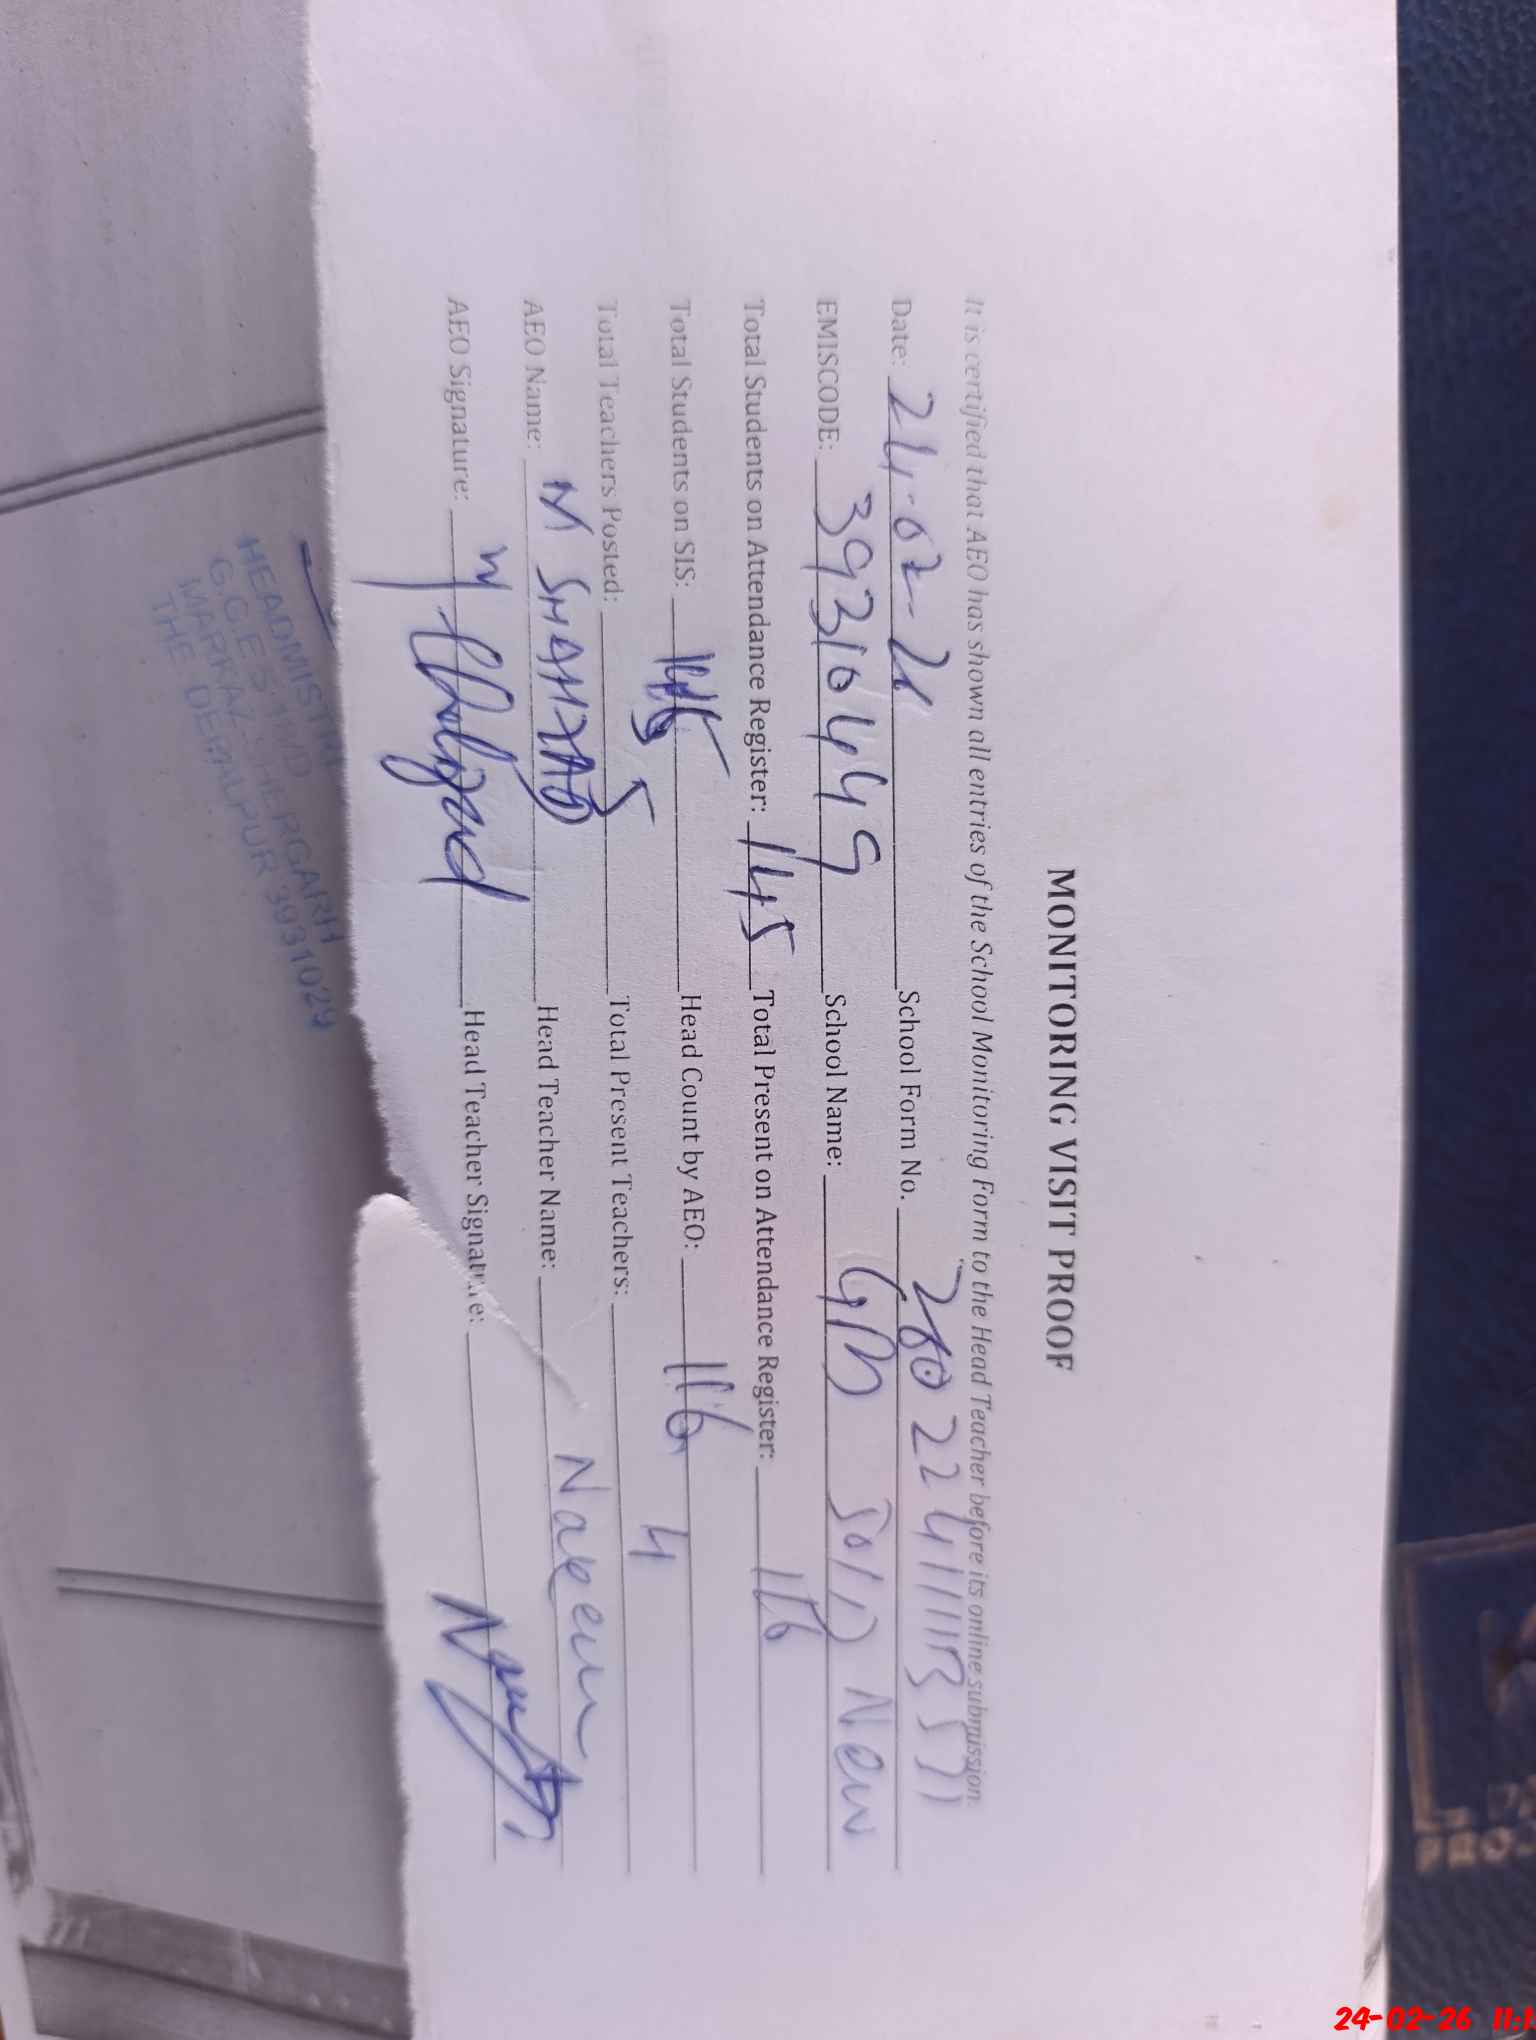 MONITORING VISIT PROOF
It is certified that AEO has shown all entries of the School Monitoring Form to the Head Teacher before its online submission.
Date: 24-02-26 School Form No.
EMISCODE: 39310449 School Name: New
Total Students on Attendance Register: 145 Total Present on Attendance Register: 116
Total Students on SIS: Head Count by AEO: 116
Total Teachers Posted: 5 Total Present Teachers: 4
AEO Name: M SHAHZAD Head Teacher Name: Naeem
AEO Signature: Head Teacher Signature:
MARKAZ SHERGARH
THE DEPALPUR 3931029
24-02-26